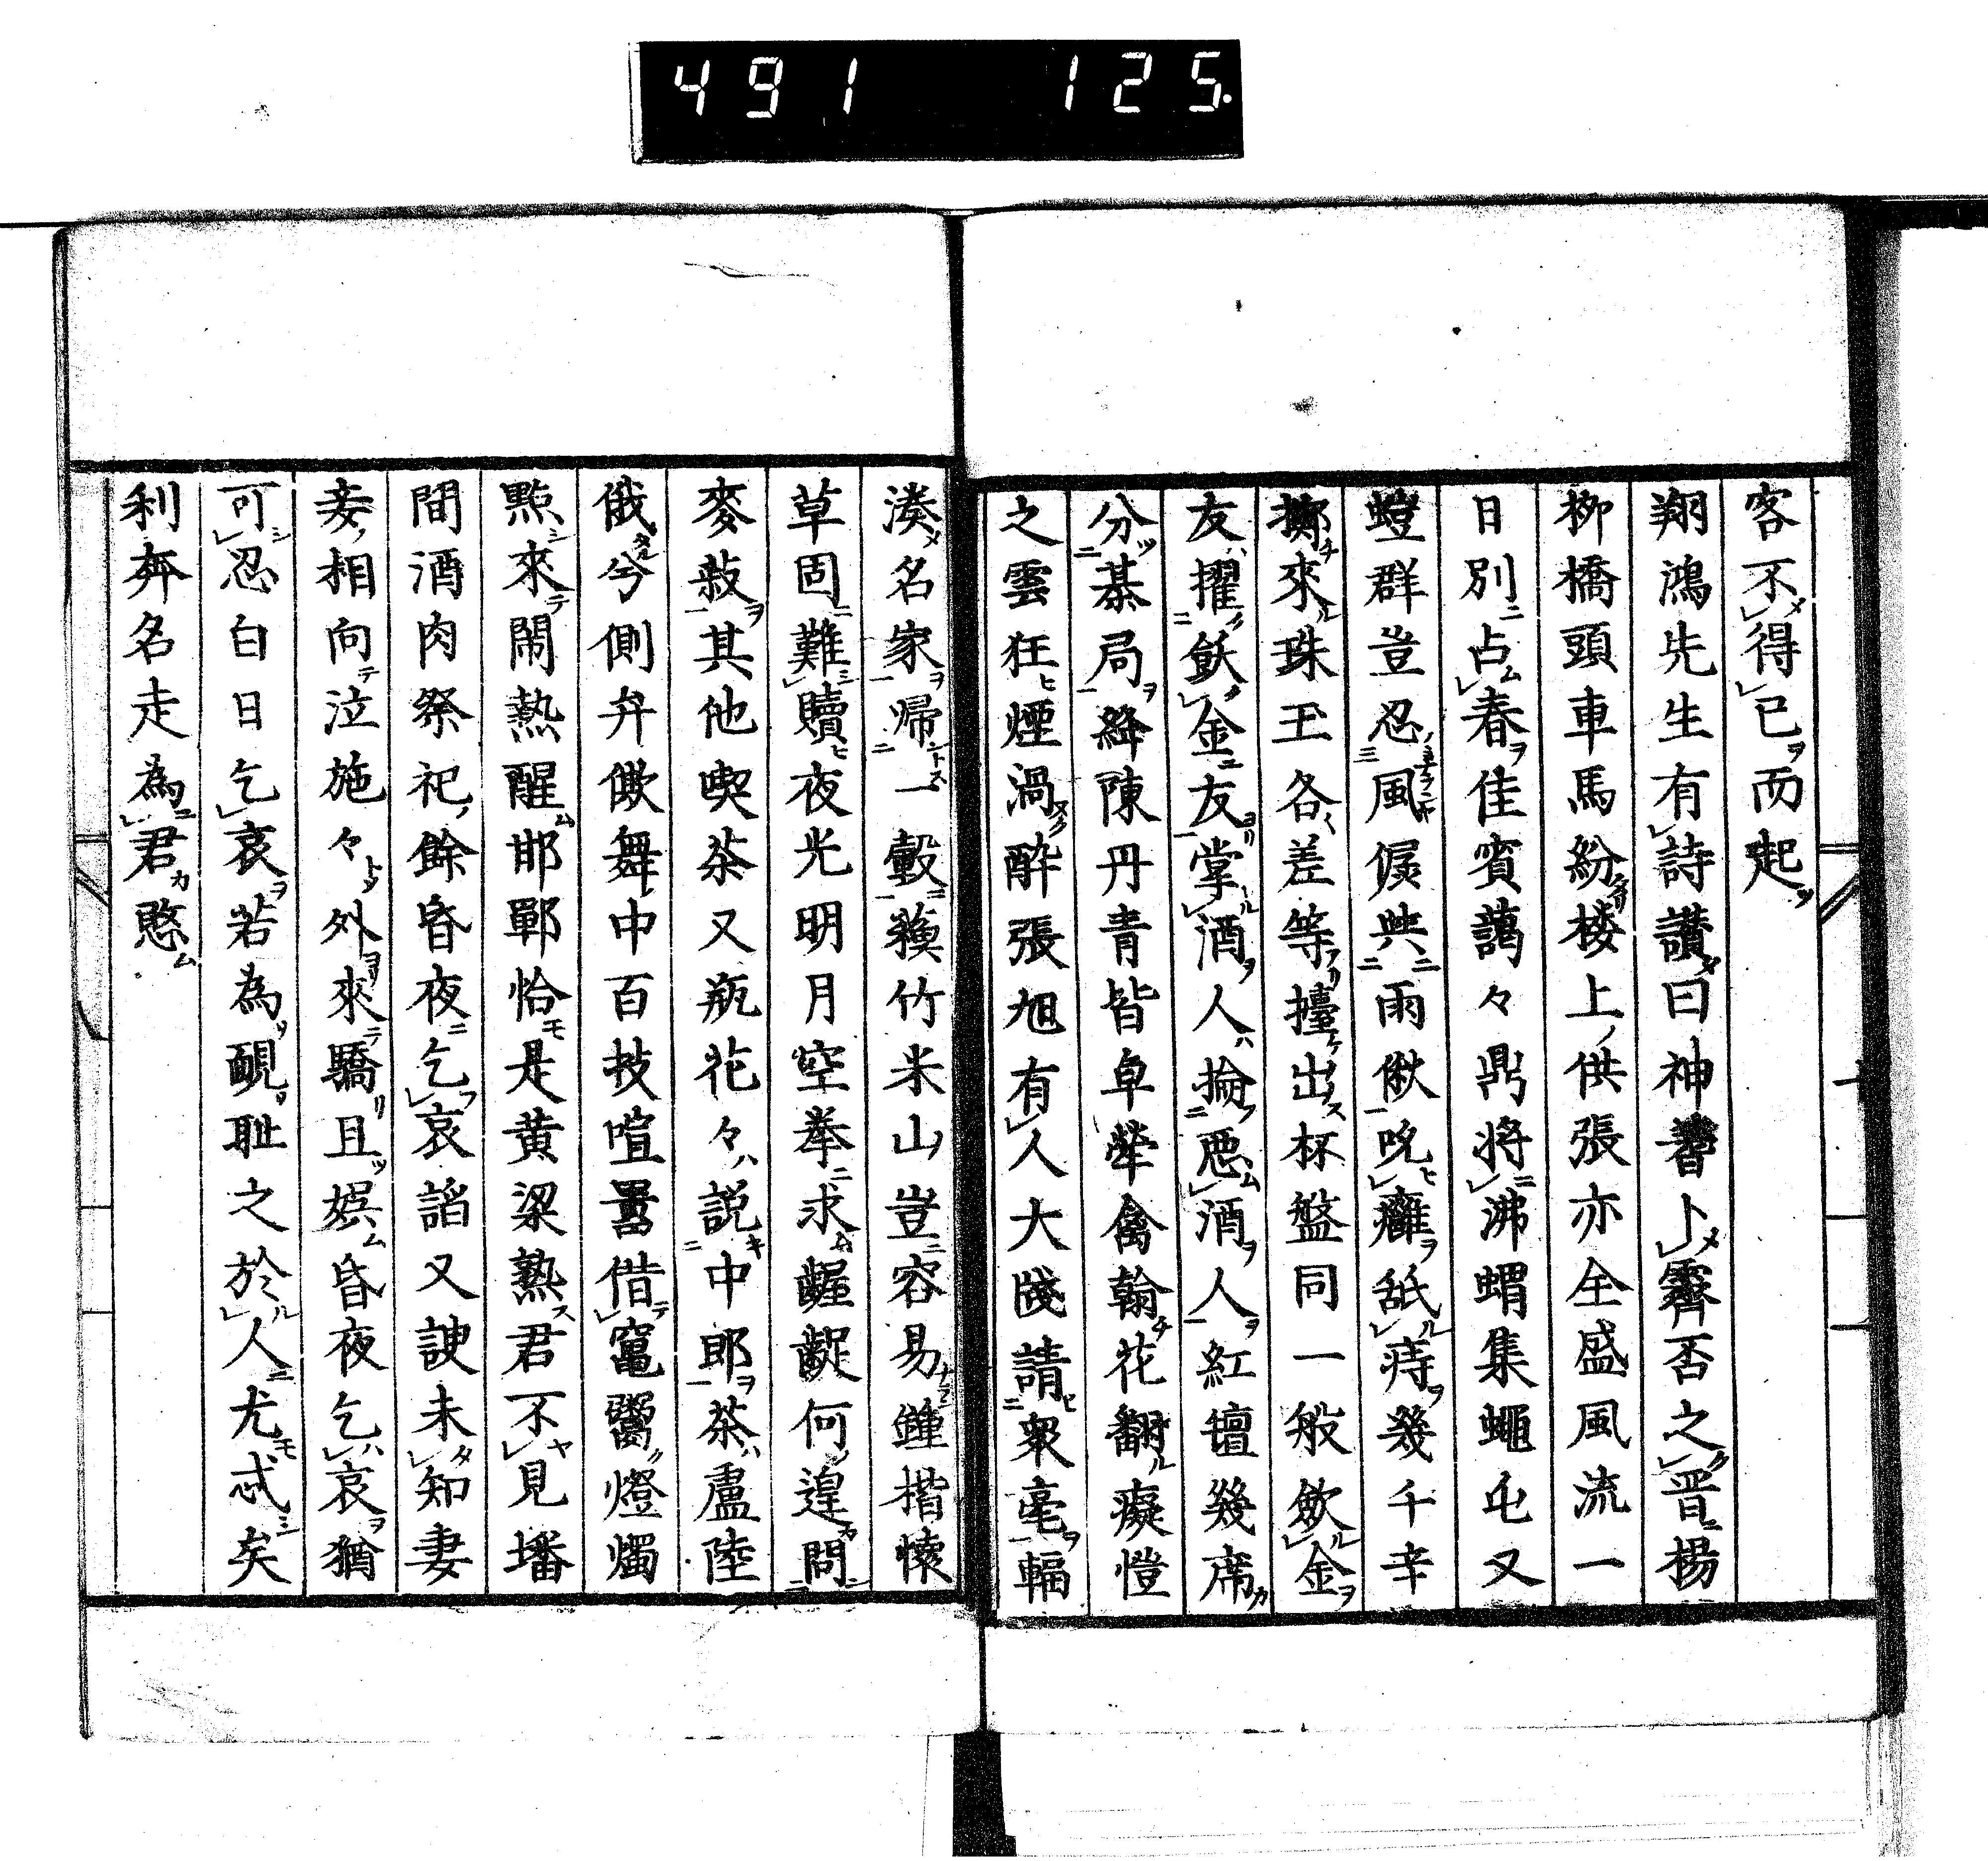 491 125.
客不得已而起
翔鴻先生有詩讚曰神耆卜霽否之晋楊
柳橋頭車馬紛楼上供張亦全盛風流一
日別占春佳賓藹々鼎將沸蝟集蠅屯又
螘群豈忍風偃與雨僛吮癰舐痔幾千辛
擲來珠玉各差等擡出杯盤同一般飲金
友擢飫金友掌酒人掄惡酒人紅氊幾席
分棊局絳陳丹青皆卓犖禽翰花翻癡愷
之雲狂煙渦酔張旭有人大牋請衆毫輻
湊名家帰一轂蘋竹米山豈容易鍾楷懐
草固難贖夜光明月空拳求齷齪何遑問
麥菽其他喫茶又瓶花々説中郎茶盧陸
俄兮側弁僛舞中百技喧囂借竃鬻燈燭
㸃來鬧熱醒邯鄲恰是黄粱熟君不見墦
間酒肉祭祀餘昏夜乞哀諂又諛未知妻
妾相向泣施々外來驕且娯昏夜乞哀猶
可忍白日乞哀若為覗耻之於人尤忒矣
利奔名走為君愍